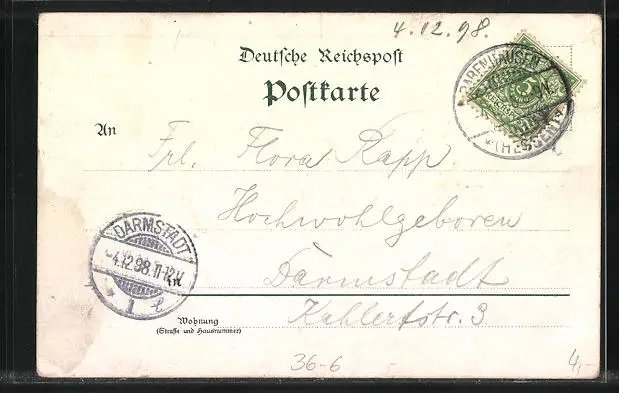 4.12.98.
Deutsche Reichspost
Postkarte
BABENHAUSEN
(HESSEN)
An
Frl. Flora Rapp.
Hochwohlgeboren
DARMSTADT
4.12.98.11-12V
1 e
in
Darmstadt
Wohnung
(Straße und Hausnummer)
Kahlertstr. 3
36-6
4,-